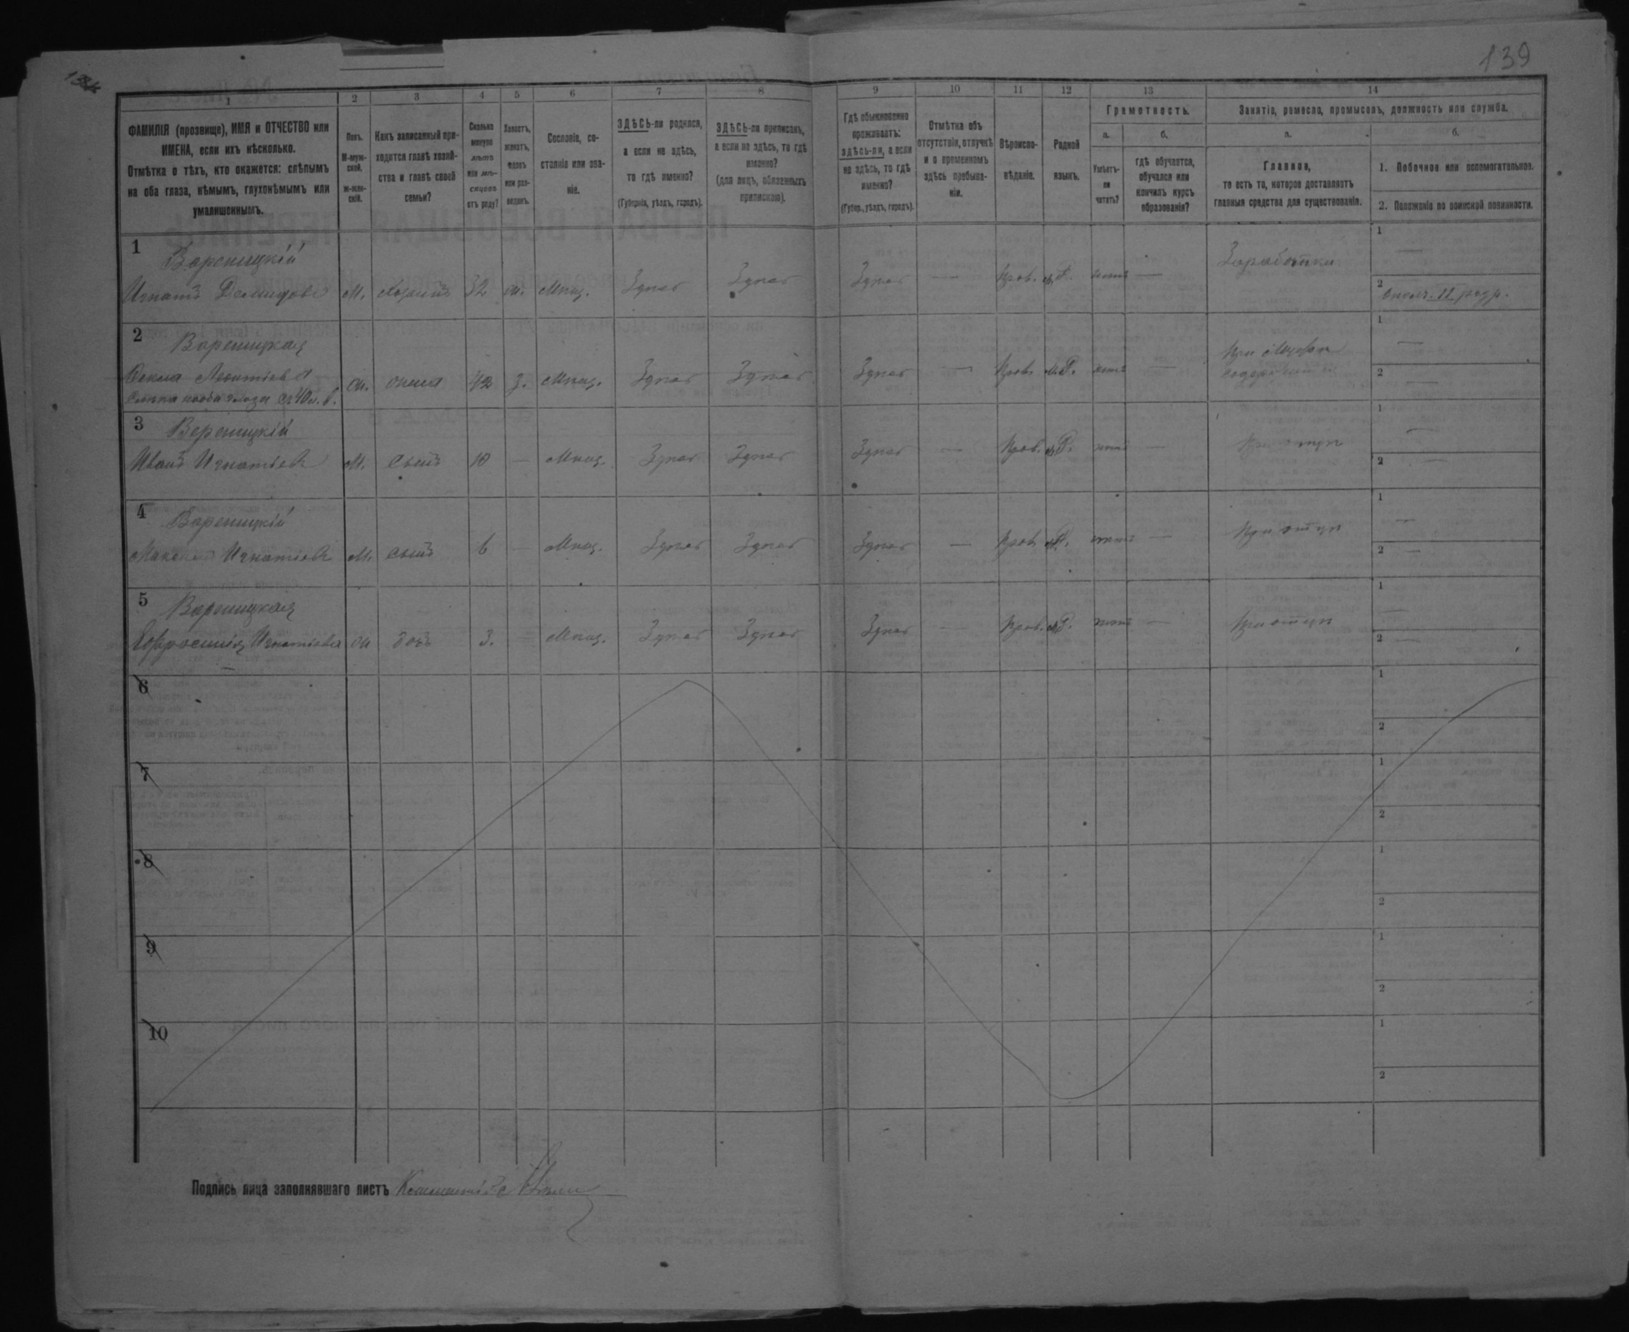 139
1 2 3 4 5 6 7 8 9 10 11 12 13 14
ФАМИЛІЯ (прозвище), ИМЯ и ОТЧЕСТВО или
ИМЕНА, если ихъ нѣсколько.
Отмѣтка о тѣхъ, кто окажется: слѣпымъ
на оба глаза, нѣмымъ, глухонѣмымъ или
умалишеннымъ.
Полъ.
М-муж-
ской.
Ж-жен-
скій.
Какъ записанный при-
ходится главѣ хозяй-
ства и главѣ своей
семьи?
Сколько
минуло
лѣтъ
или мѣ-
сяцевъ
отъ роду?
Холостъ,
женатъ,
вдовъ
или раз-
веденъ.
Сословіе, со-
стояніе или зва-
ніе.
ЗДѢСЬ-ли родился,
а если не здѣсь,
то гдѣ именно?
(Губернія, уѣздъ, городъ).
ЗДѢСЬ-ли приписанъ,
а если не здѣсь, то гдѣ
именно?
(для лицъ, обязанныхъ
припискою).
Гдѣ обыкновенно
проживаетъ:
здѣсь-ли, а если
не здѣсь, то гдѣ
именно?
(Губер., уѣздъ, городъ).
Отмѣтка объ
отсутствіи, отлучкѣ
и о временномъ
здѣсь пребыва-
ніи.
Вѣроиспо-
вѣданіе.
Родной
языкъ.
Грамотность.
а.
Умѣетъ-
ли
читать?
б.
гдѣ обучается,
обучался или
кончилъ курсъ
образованія?
Занятіе, ремесло, промыселъ, должность или служба.
а.
Главное,
то есть то, которое доставляетъ
главныя средства для существованія.
б.
1. Побочное или вспомогательное.
2. Положеніе по воинской повинности.
1
Вареницкій
Игнатъ Демидовъ М. хозяинъ 32 ж. Мѣщ. Здѣсь Здѣсь Здѣсь — Прав. Р. нѣтъ — Заработки
1 —
2 ополч. II разр.
2
Вареницкая
Леонтіева ж. жена з. Мѣщ. Здѣсь Здѣсь Здѣсь — Прав. Р. нѣтъ — При
1 —
2 —
3
Вареницкій
Иванъ Игнатьевъ М. сынъ 10 — Мѣщ. Здѣсь Здѣсь Здѣсь — Прав. Р. нѣтъ — При отцѣ
1 —
2 —
4
Вареницкій
Игнатьевъ М. сынъ 6 — Мѣщ. Здѣсь Здѣсь Здѣсь — Прав. Р. нѣтъ — При отцѣ
1 —
2 —
5
Вареницкая
Евфросинія Игнатьева ж дочь 3. — Мѣщ. Здѣсь Здѣсь Здѣсь — Прав. Р. нѣтъ — При отцѣ
1 —
2 —
6
1
2
7
1
2
8
1
2
9
1
2
10
1
2
Подпись лица заполнявшаго листъ